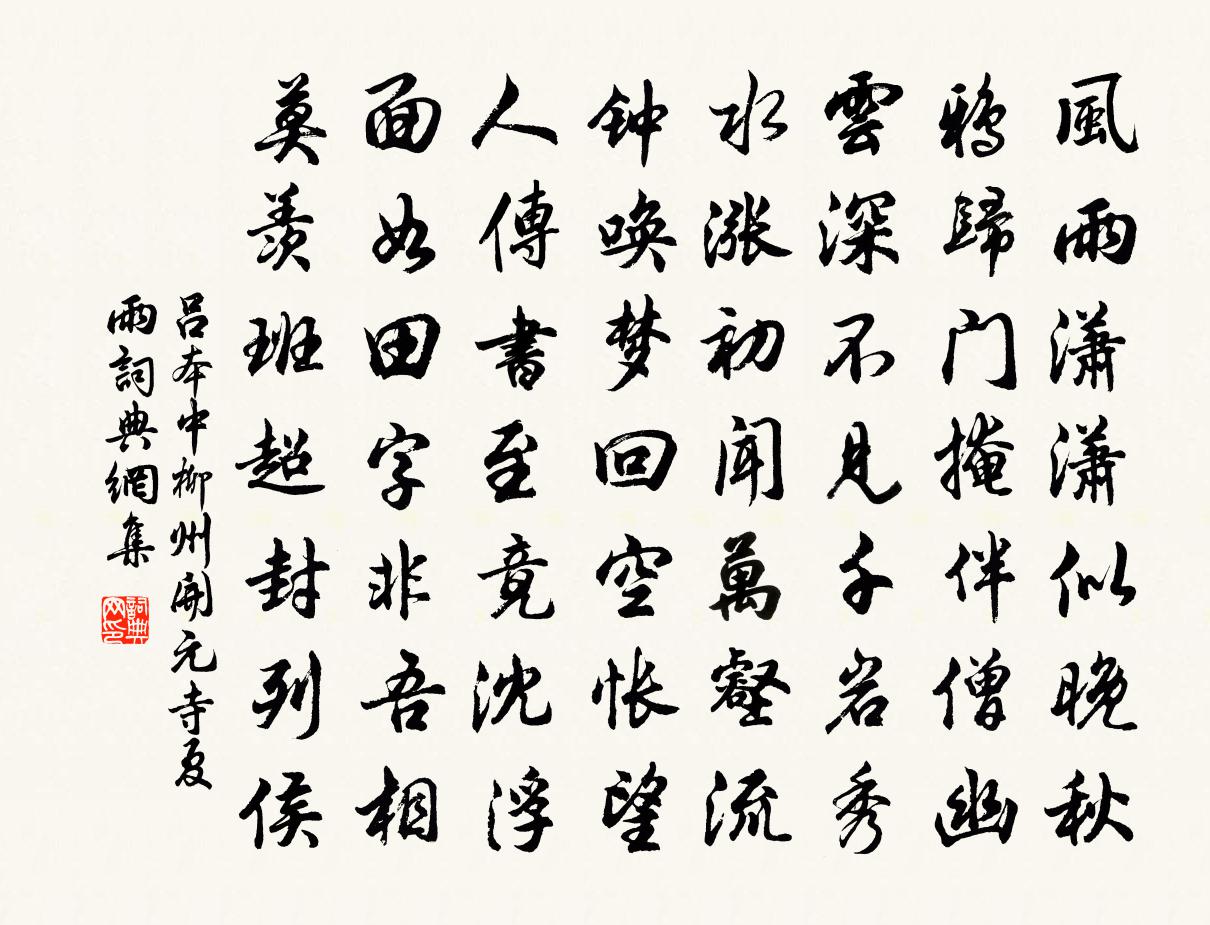 風雨潇潇似晚秋
鴉歸门掩伴僧幽
雲深不見千岩秀
水漲初闻萬壑流
钟唤梦回空怅望
人傳書至竟沈浮
面如田字非吾相
莫羨班超封列侯
吕本中柳州開元寺夏
雨詞典網集
詞典网印